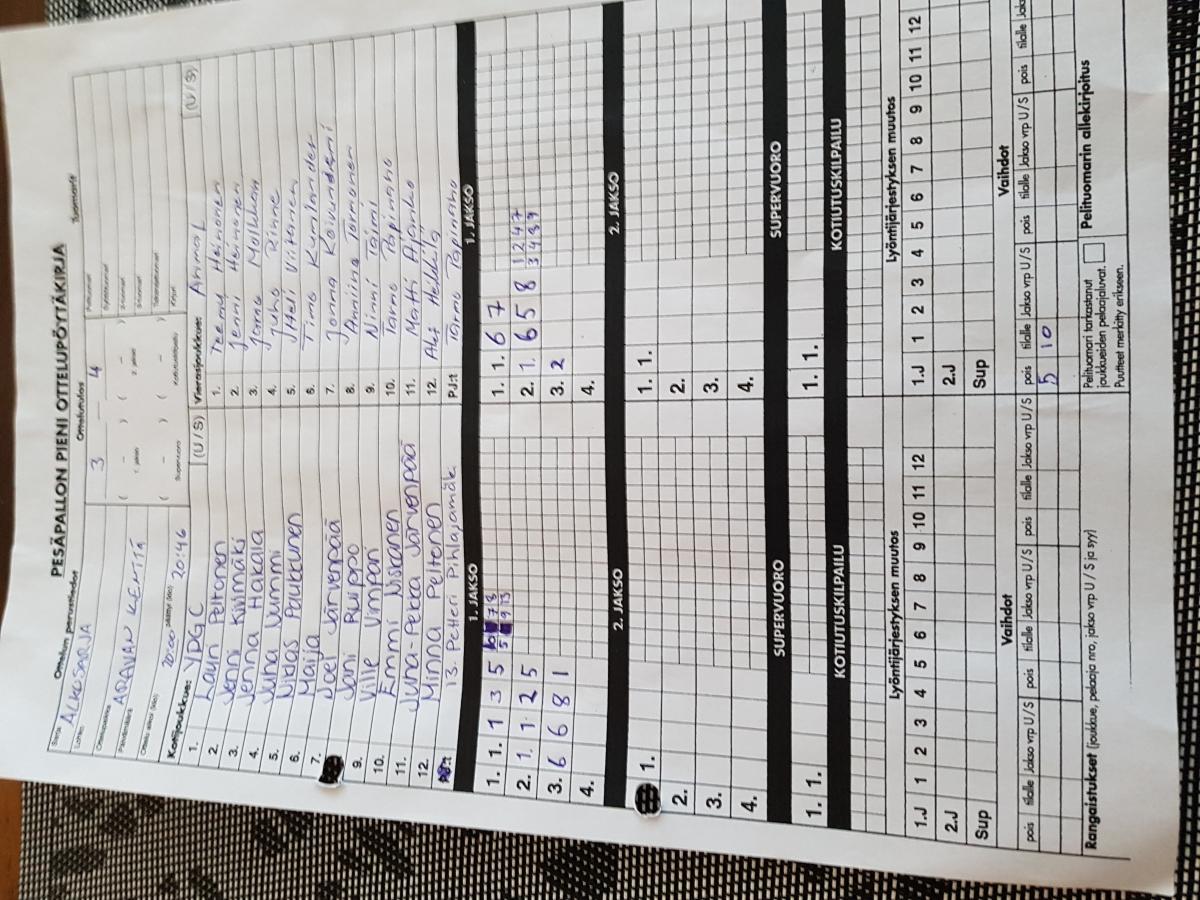 PESÄPALLON PIENI OTTELUPÖYTÄKIRJA
Ottelun perustiedot Ottelutulos Tuomarit
Sarja ALKOSARJA
Lohko
3 – 4
Ottelupaikka
Paikkakunta ARAVAN KENTTÄ
( – ) ( – )
1. jakso 2. jakso
( – ) ( – )
Supervuoro Kotiutuskilpailu
Ottelu alkoi (klo) 20:00 päättyi (klo) 20:46
Pelituomari
Syöttötuomari
2-tuomari
3-tuomari
Takarajatuomari
Kirjuri
Kotijoukkue: YDGC (U / S)
1. Lauri Peltonen
2. Jenni Kivimäki
3. Jenna Hakala
4. Juha Vummi
5. Niklas Paukkunen
6. Maija
7. Joel Järvenpää
Jani Ruippo
9. Ville Vimpari
10. Emmi Niskanen
11. Juha-Pekka Järvenpää
12. Minna Peltonen
13. Petteri Pihlajamäk
Vierasjoukkue: Animal (U / S)
1. Teemu Heinonen
2. Jenni Heinonen
3. Jarno
4. Juho Rinne
5. Meli Viitanen
6. Timo
7. Jonna Koivuniemi
8. Anniina Tarmonen
9. Ninni Taimi
10. Tarmo Tapinniho
11. Matti
12. Aki Heikkilä
PJ:t Tarmo Tapinniho
1. JAKSO 1. JAKSO
1. 1. 1 3 5 6 7 8
5 9 13
2. 1. 1 2 5
3. 6 6 8 1
4.
1. 1. 6 7
2. 1. 6 5 8 1 2 4 7
3 4 8 9
3. 2
4.
2. JAKSO 2. JAKSO
1. 1. 1.
2. 2.
3. 3.
4. 4.
SUPERVUORO SUPERVUORO
1. 1. 1. 1.
KOTIUTUSKILPAILU KOTIUTUSKILPAILU
Lyöntijärjestyksen muutos Lyöntijärjestyksen muutos
1.J 1 2 3 4 5 6 7 8 9 10 11 12 1.J 1 2 3 4 5 6 7 8 9 10 11 12
2.J 2.J
Sup Sup
Vaihdot Vaihdot
pois tilalle Jakso vrp U/S pois tilalle Jakso vrp U/S pois tilalle Jakso vrp U/S pois tilalle Jakso vrp U/S pois tilalle Jakso vrp U/S pois tilalle Jakso
5 10
Rangaistukset (joukkue, pelaaja nro, jakso vrp U / S ja syy)
Pelituomari tarkastanut
joukkueiden pelaajaluvat.
Puutteet merkitty erikseen.
Pelituomarin allekirjoitus